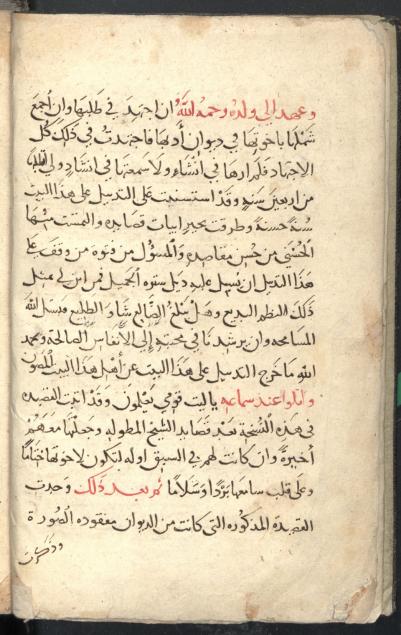 وعهد الي ولده رحمه الله ان اجتهد في طلبها وان اجمع
شملها باخوتها في ديوان أدبها فاجتهدت في ذلك كل
الاجتهاد فلم ارها في انشاء ولا سمعتها في انشاد ولي
من اربعين سنه وقد استسننت على التذييل على هذا البيت
سنة حسنة وطرقت بحير ابيات قصايده والتمست منها
الحسنى من حسن مقاصده والمسؤل من فتوة من وقف على
هذا التذييل ان يسبل عليه ذيل ستره الجميل فمن اين لي بمثل
ذلك النظم البديع وهل يبلغ الضالع شاو الضليع ونسل الله
المسامحه وان يرشدنا في محبته إلى الأنفاس الصالحة وبحمد
الله ما خرج التذييل على هذا البيت عن أهل هذا البيت المصون
وقالوا عند سماعه ياليت قومي يعلمون وقد اثبت القصيده
في هذه النسخة بعد قصايد الشيخ المطوله وجعلتها معهم
أخيرة وان كانت لهم في السبق اوله لتكون لاخوتها ختاما
وعلى قلب سامعها بردا وسلاما ثم بعد ذلك وجدت
القصيدة المذكوره التي كانت من الديوان مفقوده الصورة